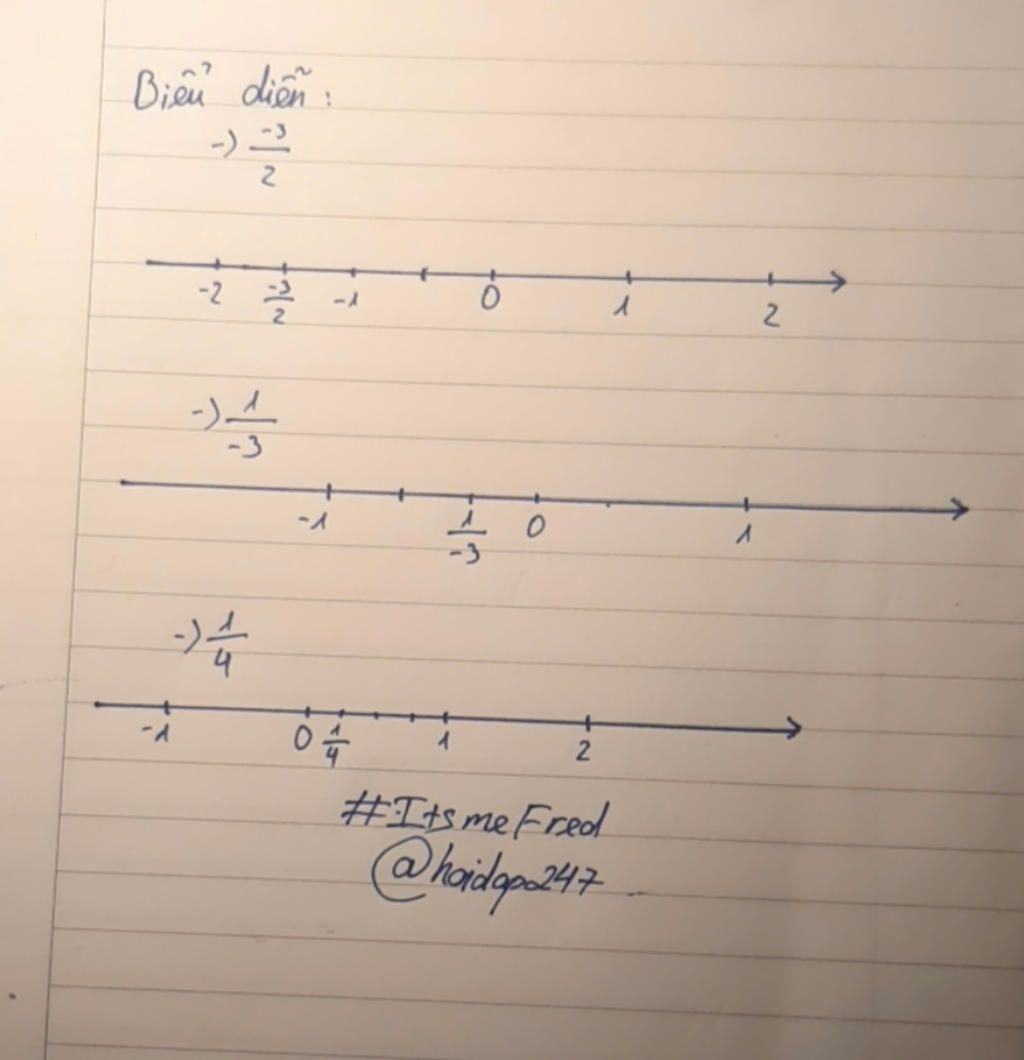 Biểu diễn:
-) -3/2
-2 -3/2 -1 0 1 2
-) 1/-3
-1 1/-3 0 1
-) 1/4
-1 0 1/4 1 2
#ItsmeFred
@hoidap247